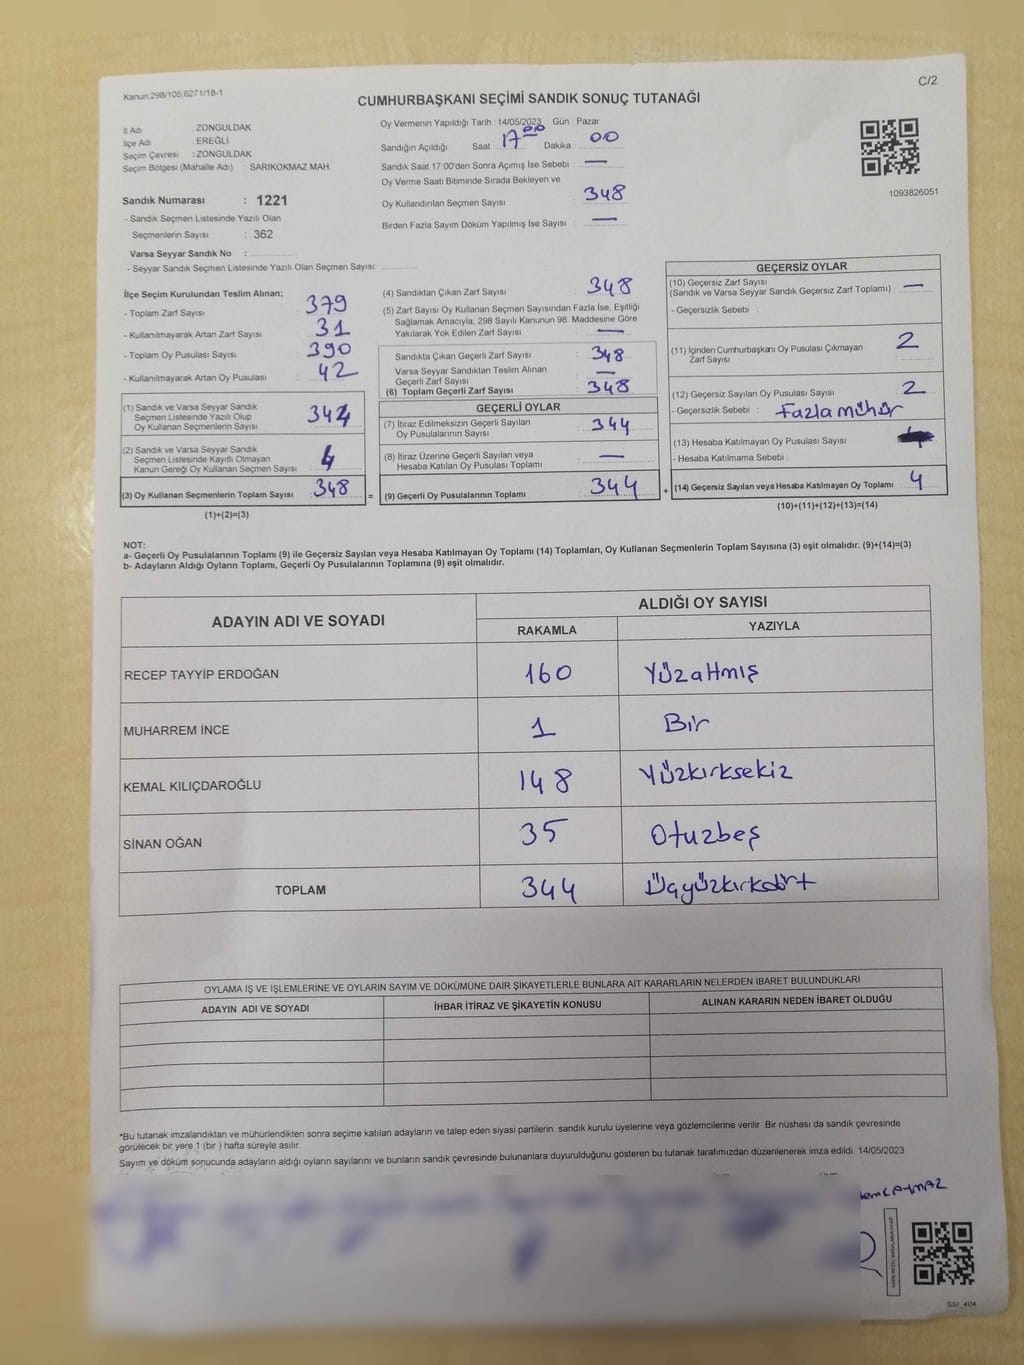 Kanun 298/105,6271/18-1
C/2
CUMHURBAŞKANI SEÇİMİ SANDIK SONUÇ TUTANAĞI
İl Adı : ZONGULDAK
İlçe Adı : EREĞLİ
Seçim Çevresi : ZONGULDAK
Seçim Bölgesi (Mahalle Adı) : SARIKOKMAZ MAH.
Oy Vermenin Yapıldığı Tarih : 14/05/2023 Gün : Pazar
Sandığın Açıldığı Saat : 17 00 Dakika : 00
Sandık Saat 17:00'den Sonra Açımış İse Sebebi : —
Oy Verme Saati Bitiminde Sırada Bekleyen ve
Oy Kullandırılan Seçmen Sayısı : 348
Birden Fazla Sayım Döküm Yapılmış İse Sayısı : —
1093826051
Sandık Numarası : 1221
- Sandık Seçmen Listesinde Yazılı Olan
Seçmenlerin Sayısı : 362
Varsa Seyyar Sandık No :
- Seyyar Sandık Seçmen Listesinde Yazılı Olan Seçmen Sayısı:
İlçe Seçim Kurulundan Teslim Alınan;
- Toplam Zarf Sayısı 379
- Kullanılmayarak Artan Zarf Sayısı 31
- Toplam Oy Pusulası Sayısı 390
- Kullanılmayarak Artan Oy Pusulası 42
(1) Sandık ve Varsa Seyyar Sandık
Seçmen Listesinde Yazılı Olup
Oy Kullanan Seçmenlerin Sayısı 344
(2) Sandık ve Varsa Seyyar Sandık
Seçmen Listesinde Kayıtlı Olmayan
Kanun Gereği Oy Kullanan Seçmen Sayısı 4
(3) Oy Kullanan Seçmenlerin Toplam Sayısı 348
(1)+(2)=(3)
(4) Sandıktan Çıkan Zarf Sayısı 348
(5) Zarf Sayısı Oy Kullanan Seçmen Sayısından Fazla İse, Eşitliği
Sağlamak Amacıyla, 298 Sayılı Kanunun 98. Maddesine Göre
Yakılarak Yok Edilen Zarf Sayısı —
Sandıkta Çıkan Geçerli Zarf Sayısı 348
Varsa Seyyar Sandıktan Teslim Alınan
Geçerli Zarf Sayısı —
(6) Toplam Geçerli Zarf Sayısı 348
GEÇERLİ OYLAR
(7) İtiraz Edilmeksizin Geçerli Sayılan
Oy Pusulalarının Sayısı 344
(8) İtiraz Üzerine Geçerli Sayılan veya
Hesaba Katılan Oy Pusulası Toplamı —
= (9) Geçerli Oy Pusulalarının Toplamı 344
GEÇERSİZ OYLAR
(10) Geçersiz Zarf Sayısı
(Sandık ve Varsa Seyyar Sandık Geçersiz Zarf Toplamı) : —
- Geçersizlik Sebebi :
(11) İçinden Cumhurbaşkanı Oy Pusulası Çıkmayan
Zarf Sayısı 2
(12) Geçersiz Sayılan Oy Pusulası Sayısı 2
- Geçersizlik Sebebi : Fazla mühür
(13) Hesaba Katılmayan Oy Pusulası Sayısı
- Hesaba Katılmama Sebebi :
+ (14) Geçersiz Sayılan veya Hesaba Katılmayan Oy Toplamı 4
(10)+(11)+(12)+(13)=(14)
NOT:
a- Geçerli Oy Pusulalarının Toplamı (9) ile Geçersiz Sayılan veya Hesaba Katılmayan Oy Toplamı (14) Toplamları, Oy Kullanan Seçmenlerin Toplam Sayısına (3) eşit olmalıdır. (9)+(14)=(3)
b- Adayların Aldığı Oyların Toplamı, Geçerli Oy Pusulalarının Toplamına (9) eşit olmalıdır.
ADAYIN ADI VE SOYADI
ALDIĞI OY SAYISI
RAKAMLA YAZIYLA
RECEP TAYYİP ERDOĞAN 160 Yüzaltmış
MUHARREM İNCE 1 Bir
KEMAL KILIÇDAROĞLU 148 Yüzkırksekiz
SİNAN OĞAN 35 Otuzbeş
TOPLAM 344 Üçyüzkırkdört
OYLAMA İŞ VE İŞLEMLERİNE VE OYLARIN SAYIM VE DÖKÜMÜNE DAİR ŞİKAYETLERLE BUNLARA AİT KARARLARIN NELERDEN İBARET BULUNDUKLARI
ADAYIN ADI VE SOYADI İHBAR İTİRAZ VE ŞİKAYETİN KONUSU ALINAN KARARIN NEDEN İBARET OLDUĞU
*Bu tutanak imzalandıktan ve mühürlendikten sonra seçime katılan adayların ve talep eden siyasi partilerin sandık kurulu üyelerine veya gözlemcilerine verilir. Bir nüshası da sandık çevresinde
görülecek bir yere 1 (bir) hafta süreyle asılır.
Sayım ve döküm sonucunda adayların aldığı oyların sayılarını ve bunların sandık çevresinde bulunanlara duyurulduğunu gösteren bu tutanak tarafımızdan düzenlenerek imza edildi. 14/05/2023
SSI_404